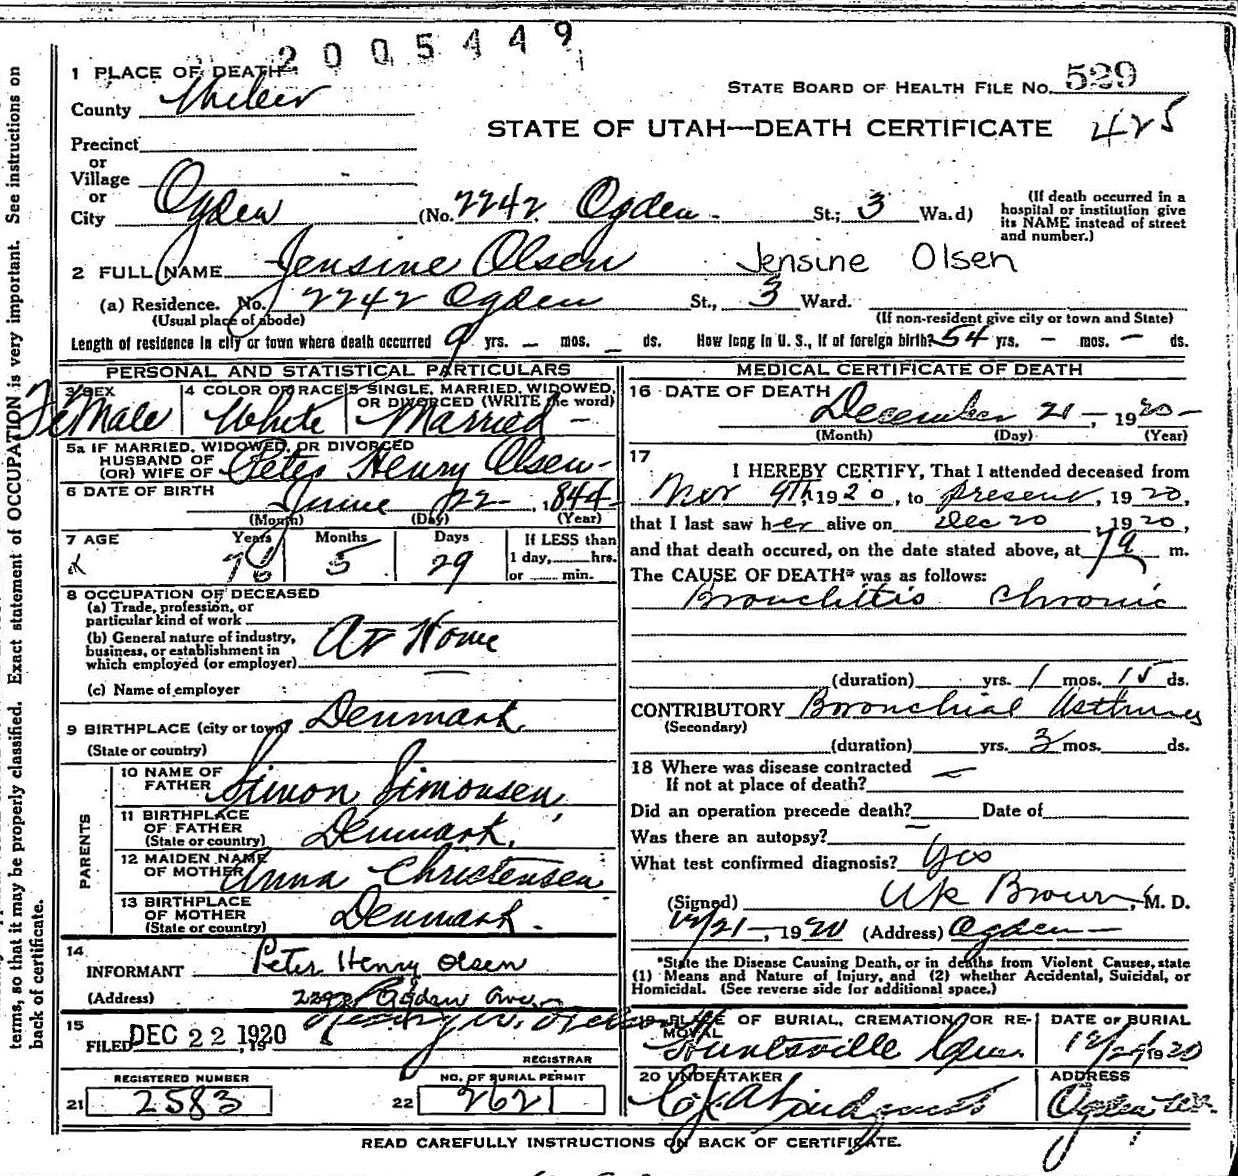 2005449
1 PLACE OF DEATH
STATE BOARD OF HEALTH FILE NO. 529
County Weber
STATE OF UTAH—DEATH CERTIFICATE 425
Precinct
or
Village
or
City Ogden (No. 2242 Ogden St.; 3 Wa.d)
(If death occurred in a
hospital or institution give
its NAME instead of street
and number.)
2 FULL NAME Jensine Olsen Jensine Olsen
(a) Residence. No. 2242 Ogden St., 3 Ward.
(Usual place of abode) (If non-resident give city or town and State)
Length of residence in city or town where death occurred 9 yrs. – mos. – ds. How long in U. S., if of foreign birth? 54 yrs. – mos. – ds.
PERSONAL AND STATISTICAL PARTICULARS
3 SEX Female
4 COLOR OR RACE White
5 SINGLE, MARRIED, WIDOWED,
OR DIVORCED (WRITE the word)
Married –
5a IF MARRIED, WIDOWED, OR DIVORCED
HUSBAND OF
(OR) WIFE OF Peter Henry Olsen
6 DATE OF BIRTH June 22, 1844
(Month) (Day) (Year)
7 AGE Years Months Days If LESS than
76 5 29 1 day, hrs.
or min.
8 OCCUPATION OF DECEASED
(a) Trade, profession, or
particular kind of work
(b) General nature of industry,
business, or establishment in
which employed (or employer)
At Home
(c) Name of employer
9 BIRTHPLACE (city or town) Denmark
(State or country)
PARENTS
10 NAME OF
FATHER Simon Simonsen
11 BIRTHPLACE
OF FATHER
(State or country) Denmark.
12 MAIDEN NAME
OF MOTHER Anna Christensen
13 BIRTHPLACE
OF MOTHER
(State or country) Denmark.
14
INFORMANT Peter Henry Olsen
(Address) Ogden Ave
15
FILED DEC 22 1920, 19
REGISTRAR
REGISTERED NUMBER
21 2583
NO. OF BURIAL PERMIT
22 2621
MEDICAL CERTIFICATE OF DEATH
16 DATE OF DEATH
December 21 –, 1920 –
(Month) (Day) (Year)
17
I HEREBY CERTIFY, That I attended deceased from
Nov 9th, 1920, to present, 1920,
that I last saw her alive on Dec 20, 1920,
and that death occured, on the date stated above, at 7 a m.
The CAUSE OF DEATH* was as follows:
Bronchittis Chronic
(duration) yrs. 1 mos. 15 ds.
CONTRIBUTORY Boronchial Asthma
(Secondary)
(duration) yrs. 3 mos. ds.
18 Where was disease contracted
If not at place of death? –
Did an operation precede death? Date of
Was there an autopsy? –
What test confirmed diagnosis? Yes
(Signed) Brown, M. D.
12/21–, 1920 (Address) Ogden –
*State the Disease Causing Death, or in deaths from Violent Causes, state
(1) Means and Nature of Injury, and (2) whether Accidental, Suicidal, or
Homicidal. (See reverse side for additional space.)
19 PLACE OF BURIAL, CREMATION OR RE-
MOVAL
Huntsville
DATE OF BURIAL
1920
20 UNDERTAKER
ADDRESS
Ogden
READ CAREFULLY INSTRUCTIONS ON BACK OF CERTIFICATE.
terms, so that it may be properly classified. Exact statement of OCCUPATION is very important. See instructions on
back of certificate.